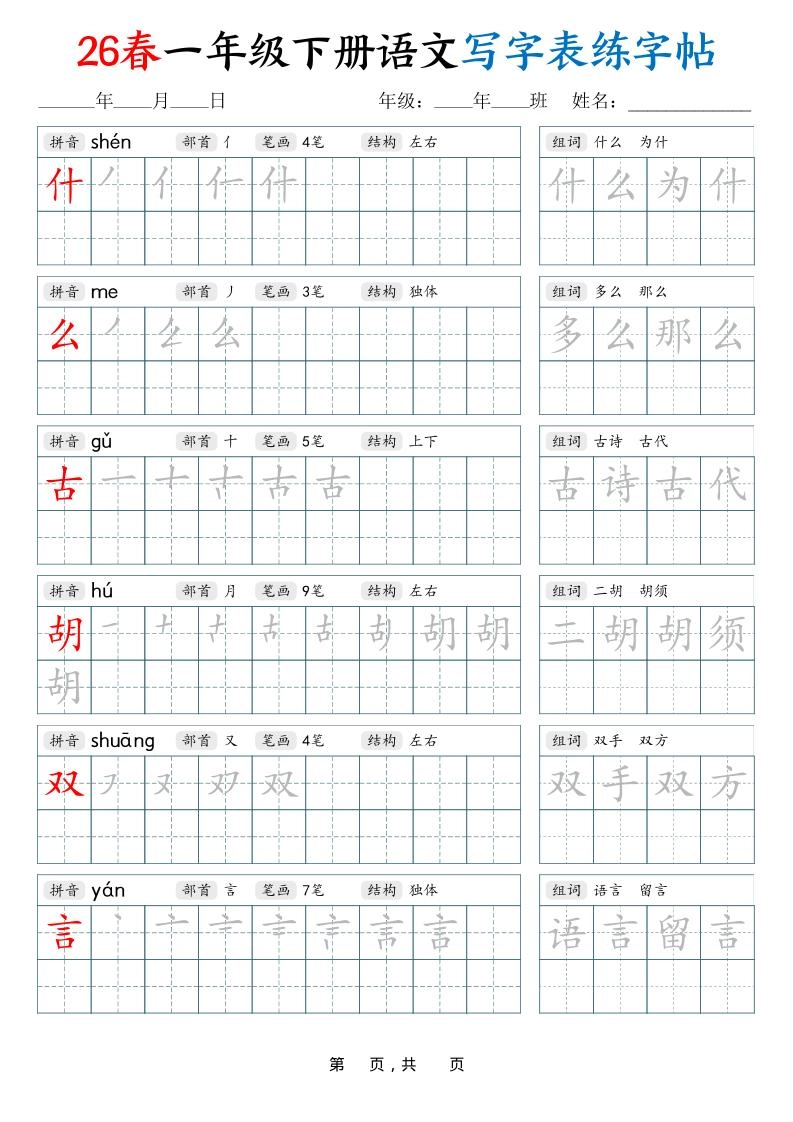 26春一年级下册语文写字表练字帖
______年____月____日 年级：____年____班 姓名：_____________
拼音 shén 部首 亻 笔画 4笔 结构 左右 组词 什么 为什
什 丿 亻 仁 什 什 么 为 什
拼音 me 部首 丿 笔画 3笔 结构 独体 组词 多么 那么
么 丿 么 么 多 么 那 么
拼音 gǔ 部首 十 笔画 5笔 结构 上下 组词 古诗 古代
古 一 十 古 古 古 古 诗 古 代
拼音 hú 部首 月 笔画 9笔 结构 左右 组词 二胡 胡须
胡 一 十 古 古 古 胡 胡 胡 二 胡 胡 须
胡
拼音 shuāng 部首 又 笔画 4笔 结构 左右 组词 双手 双方
双 フ 又 双 双 双 手 双 方
拼音 yán 部首 言 笔画 7笔 结构 独体 组词 语言 留言
言 丶 亠 言 言 言 言 言 语 言 留 言
第 页，共 页